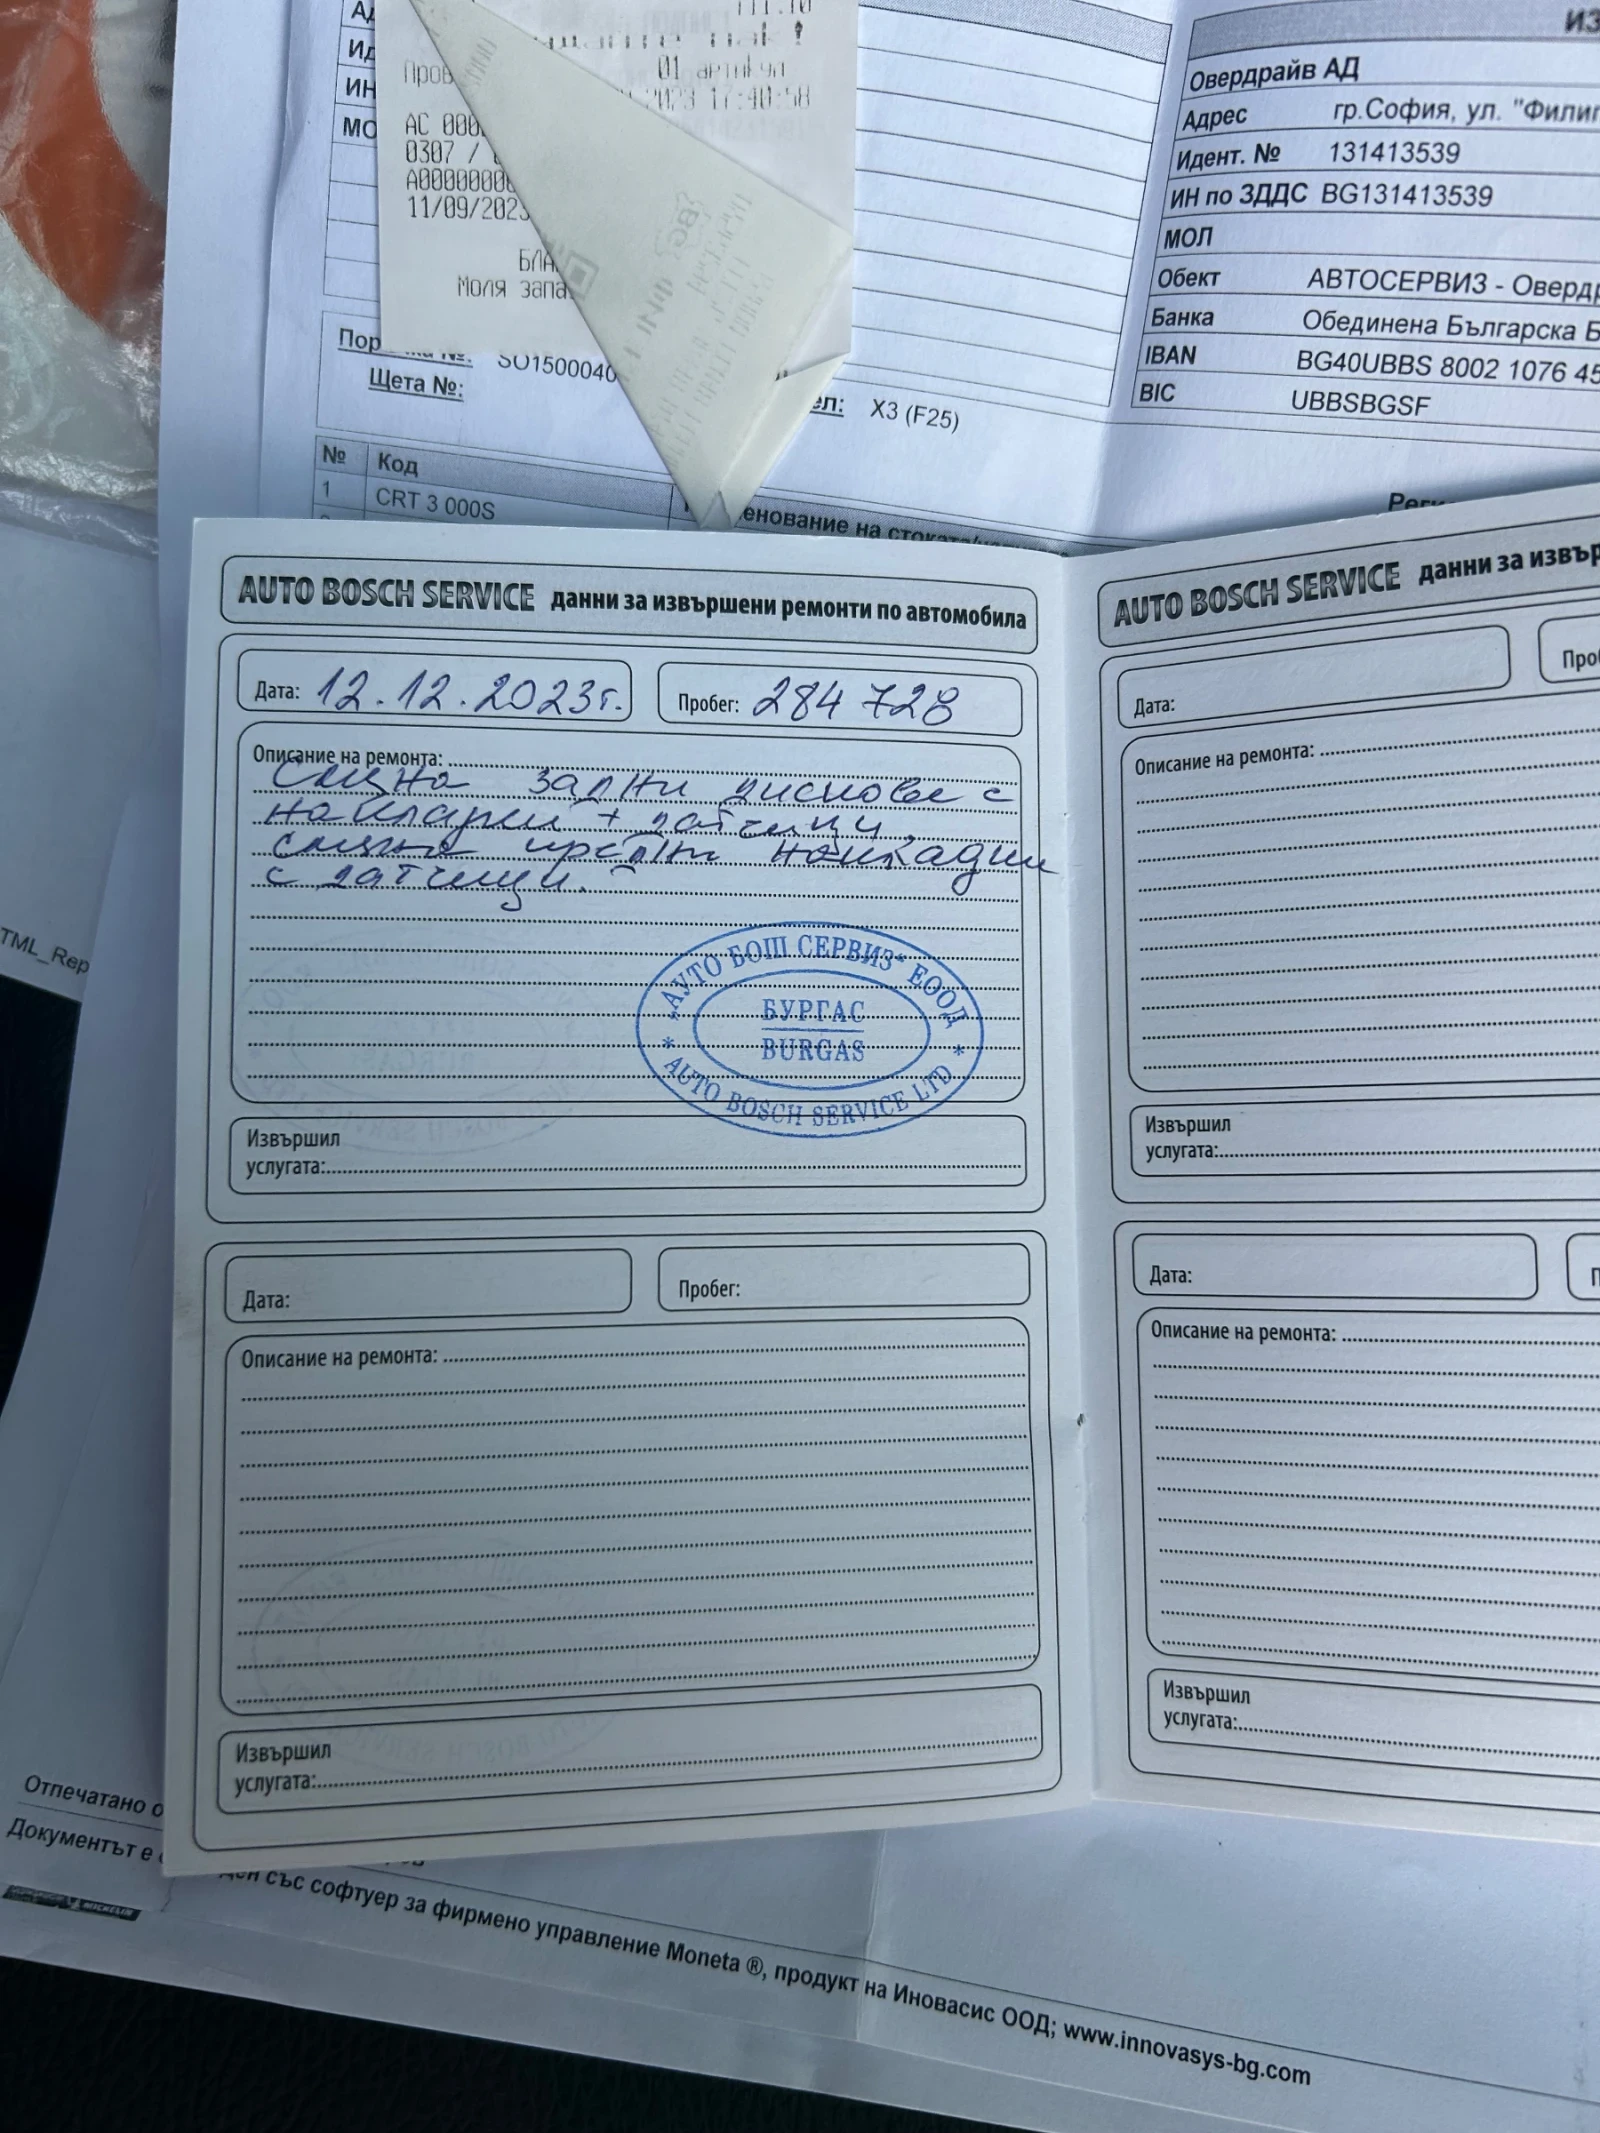 Ад
Ид
ИН
МО
111.10
01 артикул
2023 17:40:58
AC 000
0307 /
A00000000
11/09/2023
Моля запа
ИЗ
Овердрайв АД
Адрес гр.София, ул. "Филип
Идент. № 131413539
ИН по ЗДДС BG131413539
МОЛ
Обект АВТОСЕРВИЗ - Овердр
Банка Обединена Българска Б
IBAN BG40UBBS 8002 1076 45
BIC UBBSBGSF
SO1500040
Щета №:
ел: X3 (F25)
№ Код
1 CRT 3 000S
енование на стоката/
Реги
AUTO BOSCH SERVICE данни за извършени ремонти по автомобила
Дата: 12.12.2023г. Пробег: 284 728
Описание на ремонта:
Смяна задни дискове с
накладки + датчици.
смяна предни накладки
с датчици.
"АУТО БОШ СЕРВИЗ" ЕООД
БУРГАС
BURGAS
* AUTO BOSCH SERVICE LTD *
Извършил
услугата:
Дата: Пробег:
Описание на ремонта:
Извършил
услугата:
AUTO BOSCH SERVICE данни за извър
Дата: Про
Описание на ремонта:
Извършил
услугата:
Дата: П
Описание на ремонта:
Извършил
услугата:
TML_Rep
Отпечатано о
Документът е
ден със софтуер за фирмено управление Moneta ®, продукт на Иновасис ООД; www.innovasys-bg.com
MICHELIN